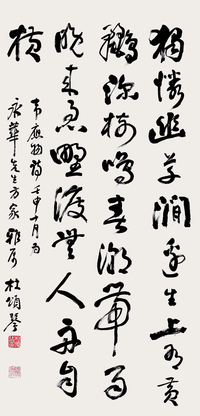 獨憐幽草澗邊生上有黃
鸝深樹鳴春潮帶雨
晚來急野渡無人舟自
橫
韋應物詩壬申十月為
永華先生方家雅屬 杜頌琴